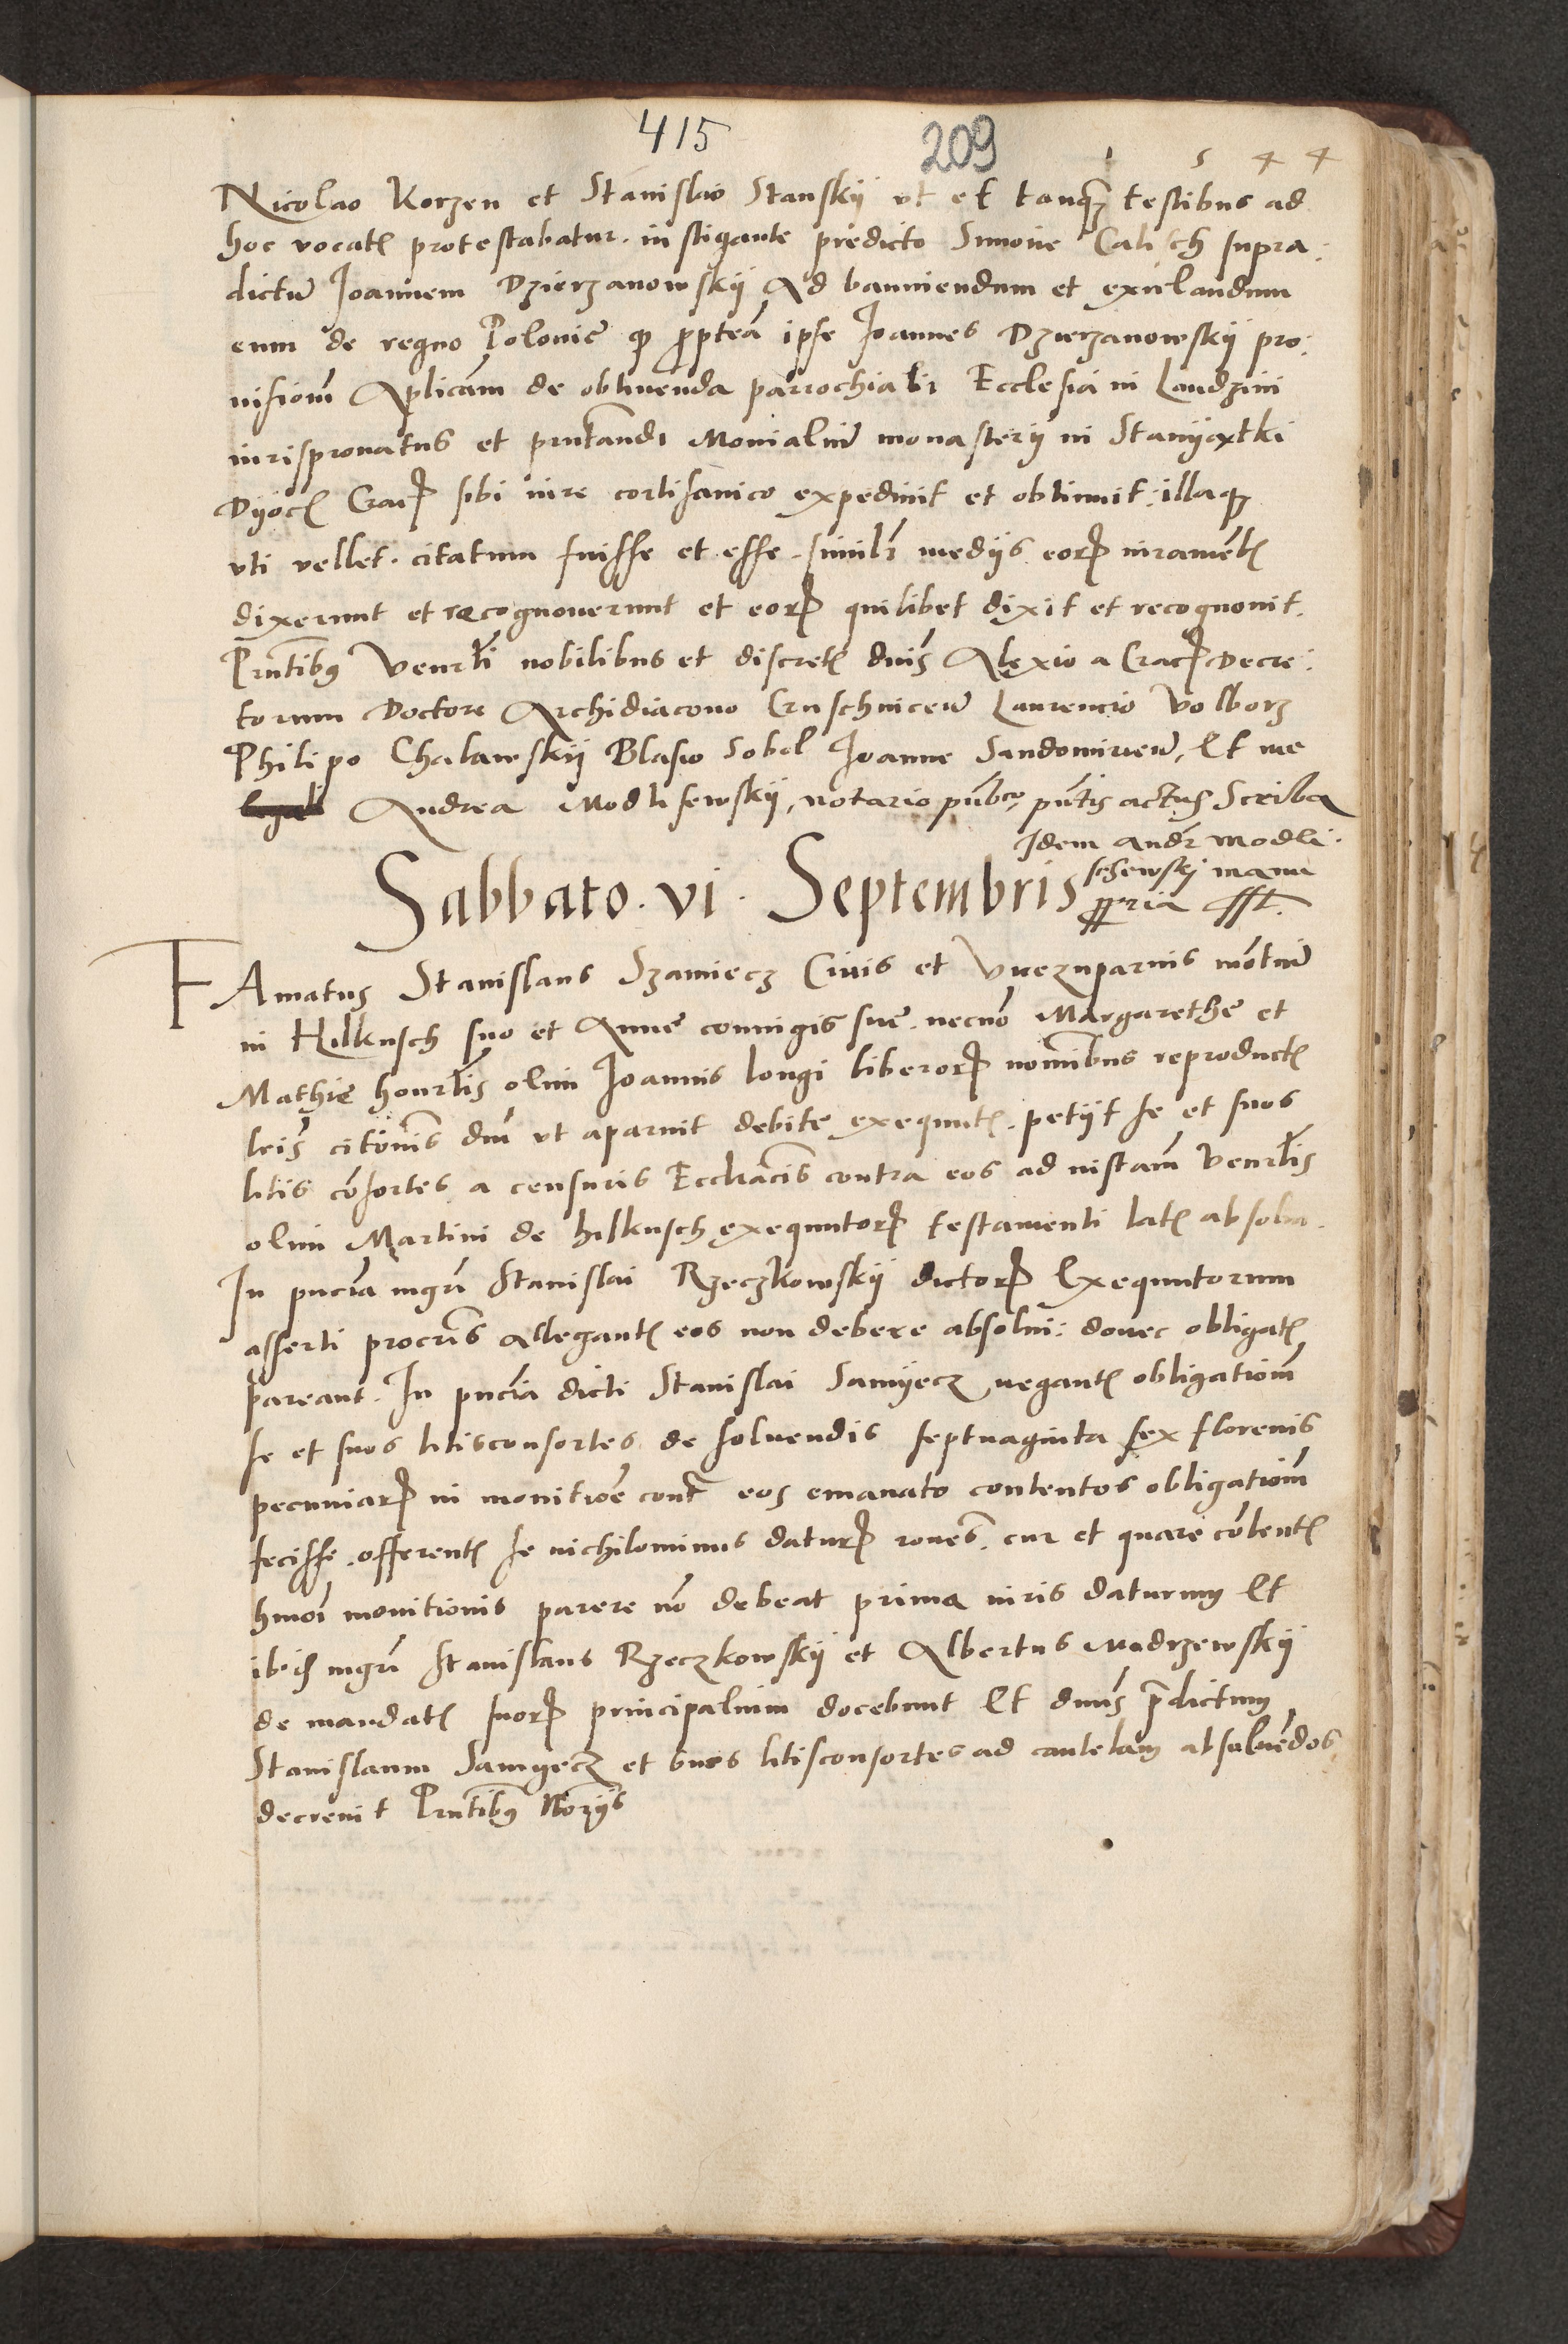 415
209
1 5 4 4
Nicolao Korzen et Stanislao Stanskÿ ut et tanqȝ testibus ad
hoc vocatꝭ protestabatur. instigante predicto Simone Calisch supra:
dictū Joannem Dzierzanowskÿ Ad banniendum et exulandum
eum de regno Polonię ꝙ ꝓptea ipse Joannes Dzierzanowskÿ pro:
uisionē Aplicam de obtinenda parrochiali Ecclesia in Landzini
iurispronatus et pñtandi Monialiū monasterÿ in Stanÿatki
Dÿocꝭ Cracꝝ sibi iure cortisanico expediuit et obtinuit: illaqȝ
vti vellet. citatum fuisse et esse. similr̄ medÿs eorꝝ iuramētꝭ
dixerunt et recognouerunt et eorꝝ quilibet dixit et recognouit.
Pñtibꝰ Venrl̄i nobilibus et discretꝭ dnis̄ Alexio a Cracꝝ Decre:
torum Doctore Archidiacono Cruschuiceñ Laurencio Volborz
Philipo Chalawskÿ Blasio Sobel Joanne Sandomirieñ, Et me
Andrea Modlisewskÿ, notario pūbco, pñtis actus Scriba
Idem Andr̄ Modli:
schewskj manu
ꝓpria sst.
Sabbato. vi. Septembris
FAmatus Stanislaus Szamiecz Ciuis et Vuezuparius montiū
in Hilkusch suo et Annę coniugis suę. necnō Margarethę et
Mathię honrl̄is olim Joannis longi liberorꝝ nomībus reproductꝭ
lris̄ citōnis dm̄ vt aparuit debite exequutꝭ. petÿt se et suos
litis cōsortes a censuris Ecclīacīs contra eos ad instam̄ Venrl̄is
olim Martini de hilkusch exequutorꝝ testamenti latꝭ absolui.
In pn̄cia mgrī Stanislai Rzeczkowskÿ dictorꝝ Exequutorum
asserti procrīs allegantꝭ eos non debere absolui: donec obligatꝭ
pareant. In pn̄cia dicti Stanislai Samÿecz negantꝭ obligationē
se et suos litisconsortes de soluendis septuaginta sex florenis
pecuniarꝝ in monitiōe cont̄ eos emanato contentos obligationē
fecisse. offerentꝭ se nichilominus daturꝝ rōnes. cur et quare cōtentꝭ
hmōi monitionis parere nō debeat prima iuris daturuꝫ Et
ibiꝺ mgrī Stanislaus Rzeczkowskÿ et Albertus Modrzewskÿ
de mandatꝭ suorꝝ principalium docebunt Et dnus̄ p̄dictuꝫ
Stanislaum Samyecz et suos litisconsortes ad cautelaꝫ absoluēdos
decreuit Pñtibꝰ Notÿs